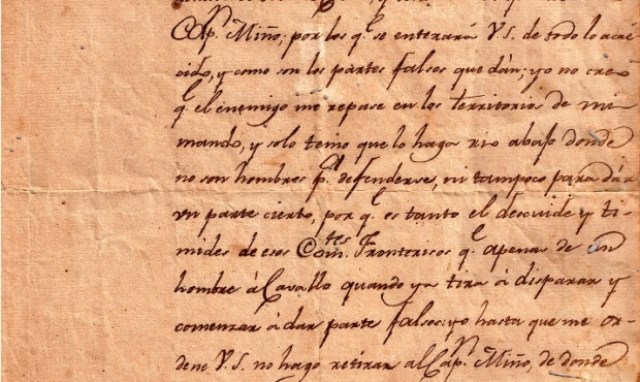 Cap.ⁿ Miño, por los q.ᵉ se enterará V.S. de todo lo acae
cido, y como son los partes falsos que dán; yo no creo
q.ᵉ el enemigo me repase en los territorio de mi
mando, y solo temo que lo haga rio abajo donde
no son hombres p.ᵃ defenderse, ni tampoco para dár
un parte cierto, por q.ᵉ es tanto el descuide y ti
mides de esos Com.ᵗᵉˢ Fronterisos q.ᵉ apenas vé un
hombre á Cavallo quando ya tira á disparar y
comenzar á dar parte falso: yo hasta que me or
dene V.S. no hago retirar al Cap.ⁿ Miño, de donde